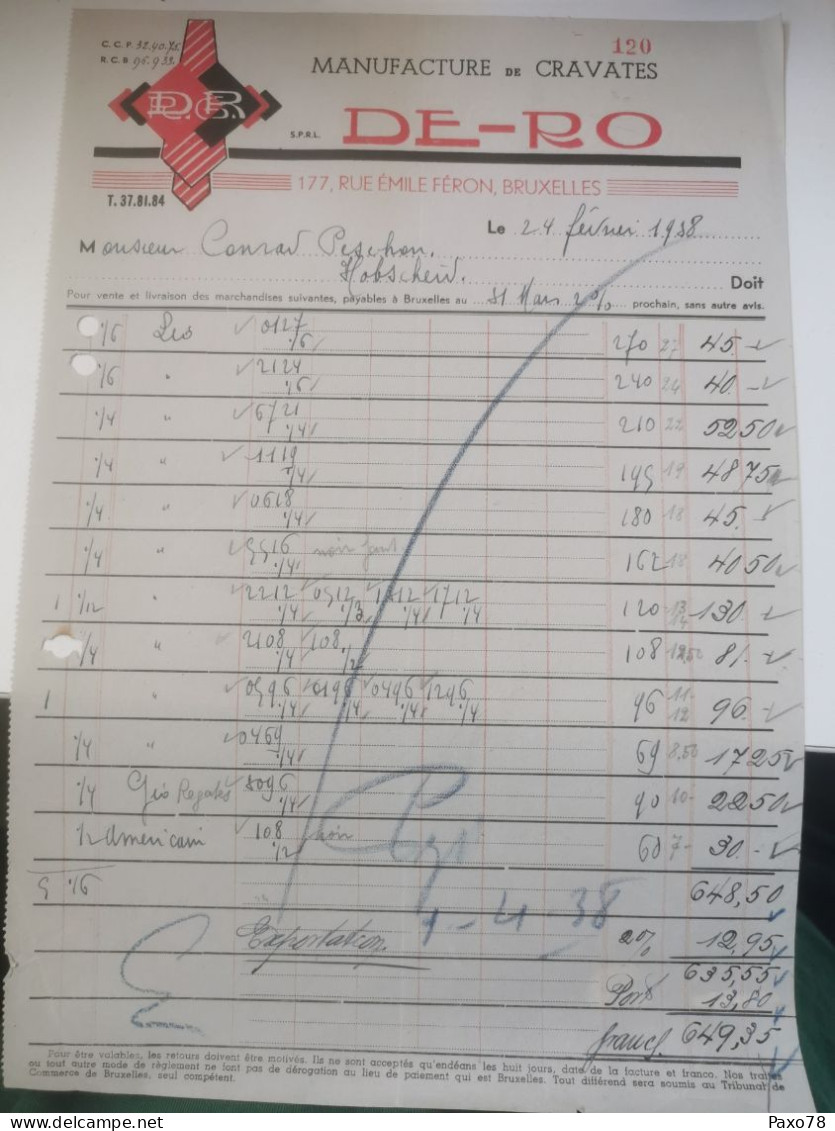 120
C. C. P. 32.40.75
R. C. B 96.933
MANUFACTURE DE CRAVATES
D.R.
S.P.R.L. DE-RO
177, RUE ÉMILE FÉRON, BRUXELLES
T. 37.81.84
Le 24 février 1938
Monsieur Conrad Peschon.
Hobscheid.
Doit
Pour vente et livraison des marchandises suivantes, payables à Bruxelles au 31 Mars 2% prochain, sans autre avis.
1/6 0127 270 27 45.-
1/6
1/6 " 2124 240 24 40.-
1/6
1/4 " 6721 210 22 5250
1/4
1/4 " 1119 195 19 4875
1/4
1/4 " 0618 180 18 45.-
1/4
1/4 " 5516 162 18 4050
1/4
1 1/12 " 2212 0512 1312 1712 120 13 14 130.-
1/4 1/3 1/4 1/4
3/4 " 2108 108 108 12,50 81.-
1/4 1/2
1 " 0596 0196 0496 1296 96 11- 12 96.-
1/4 1/4 1/4 1/4
1/4 " 0469 69 8,50 1725
1/4
1/4 5096 90 10- 2250
1/4
1/2 Americain 108 noir 60 7- 30.-
1/2
5 1/6 648,50
1-4-38
Exportation 2% 12,95
635,55
Port 13,80
francs 649,35
Pour être valables, les retours doivent être motivés. Ils ne sont acceptés qu'endéans les huit jours, date de la facture et franco. Nos traites
ou tout autre mode de règlement ne font pas de dérogation au lieu de paiement qui est Bruxelles. Tout différend sera soumis au Tribunal de
Commerce de Bruxelles, seul compétent.
Paxo78